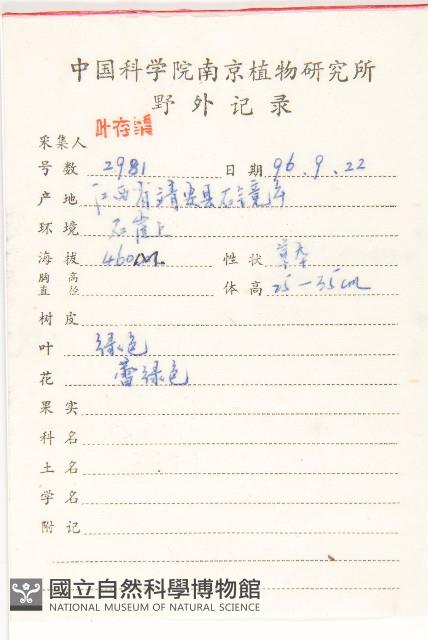 中国科学院南京植物研究所
野外记录
采集人 叶存
号数 2981 日期 96.9.22
产地 江西省靖安县石
环境 石崖上
海拔 460m 性状 草本
胸高直径 体高 25—35cm
树皮
叶 绿色
花 蕾绿色
果实
科名
土名
学名
附记
國立自然科學博物館
NATIONAL MUSEUM OF NATURAL SCIENCE